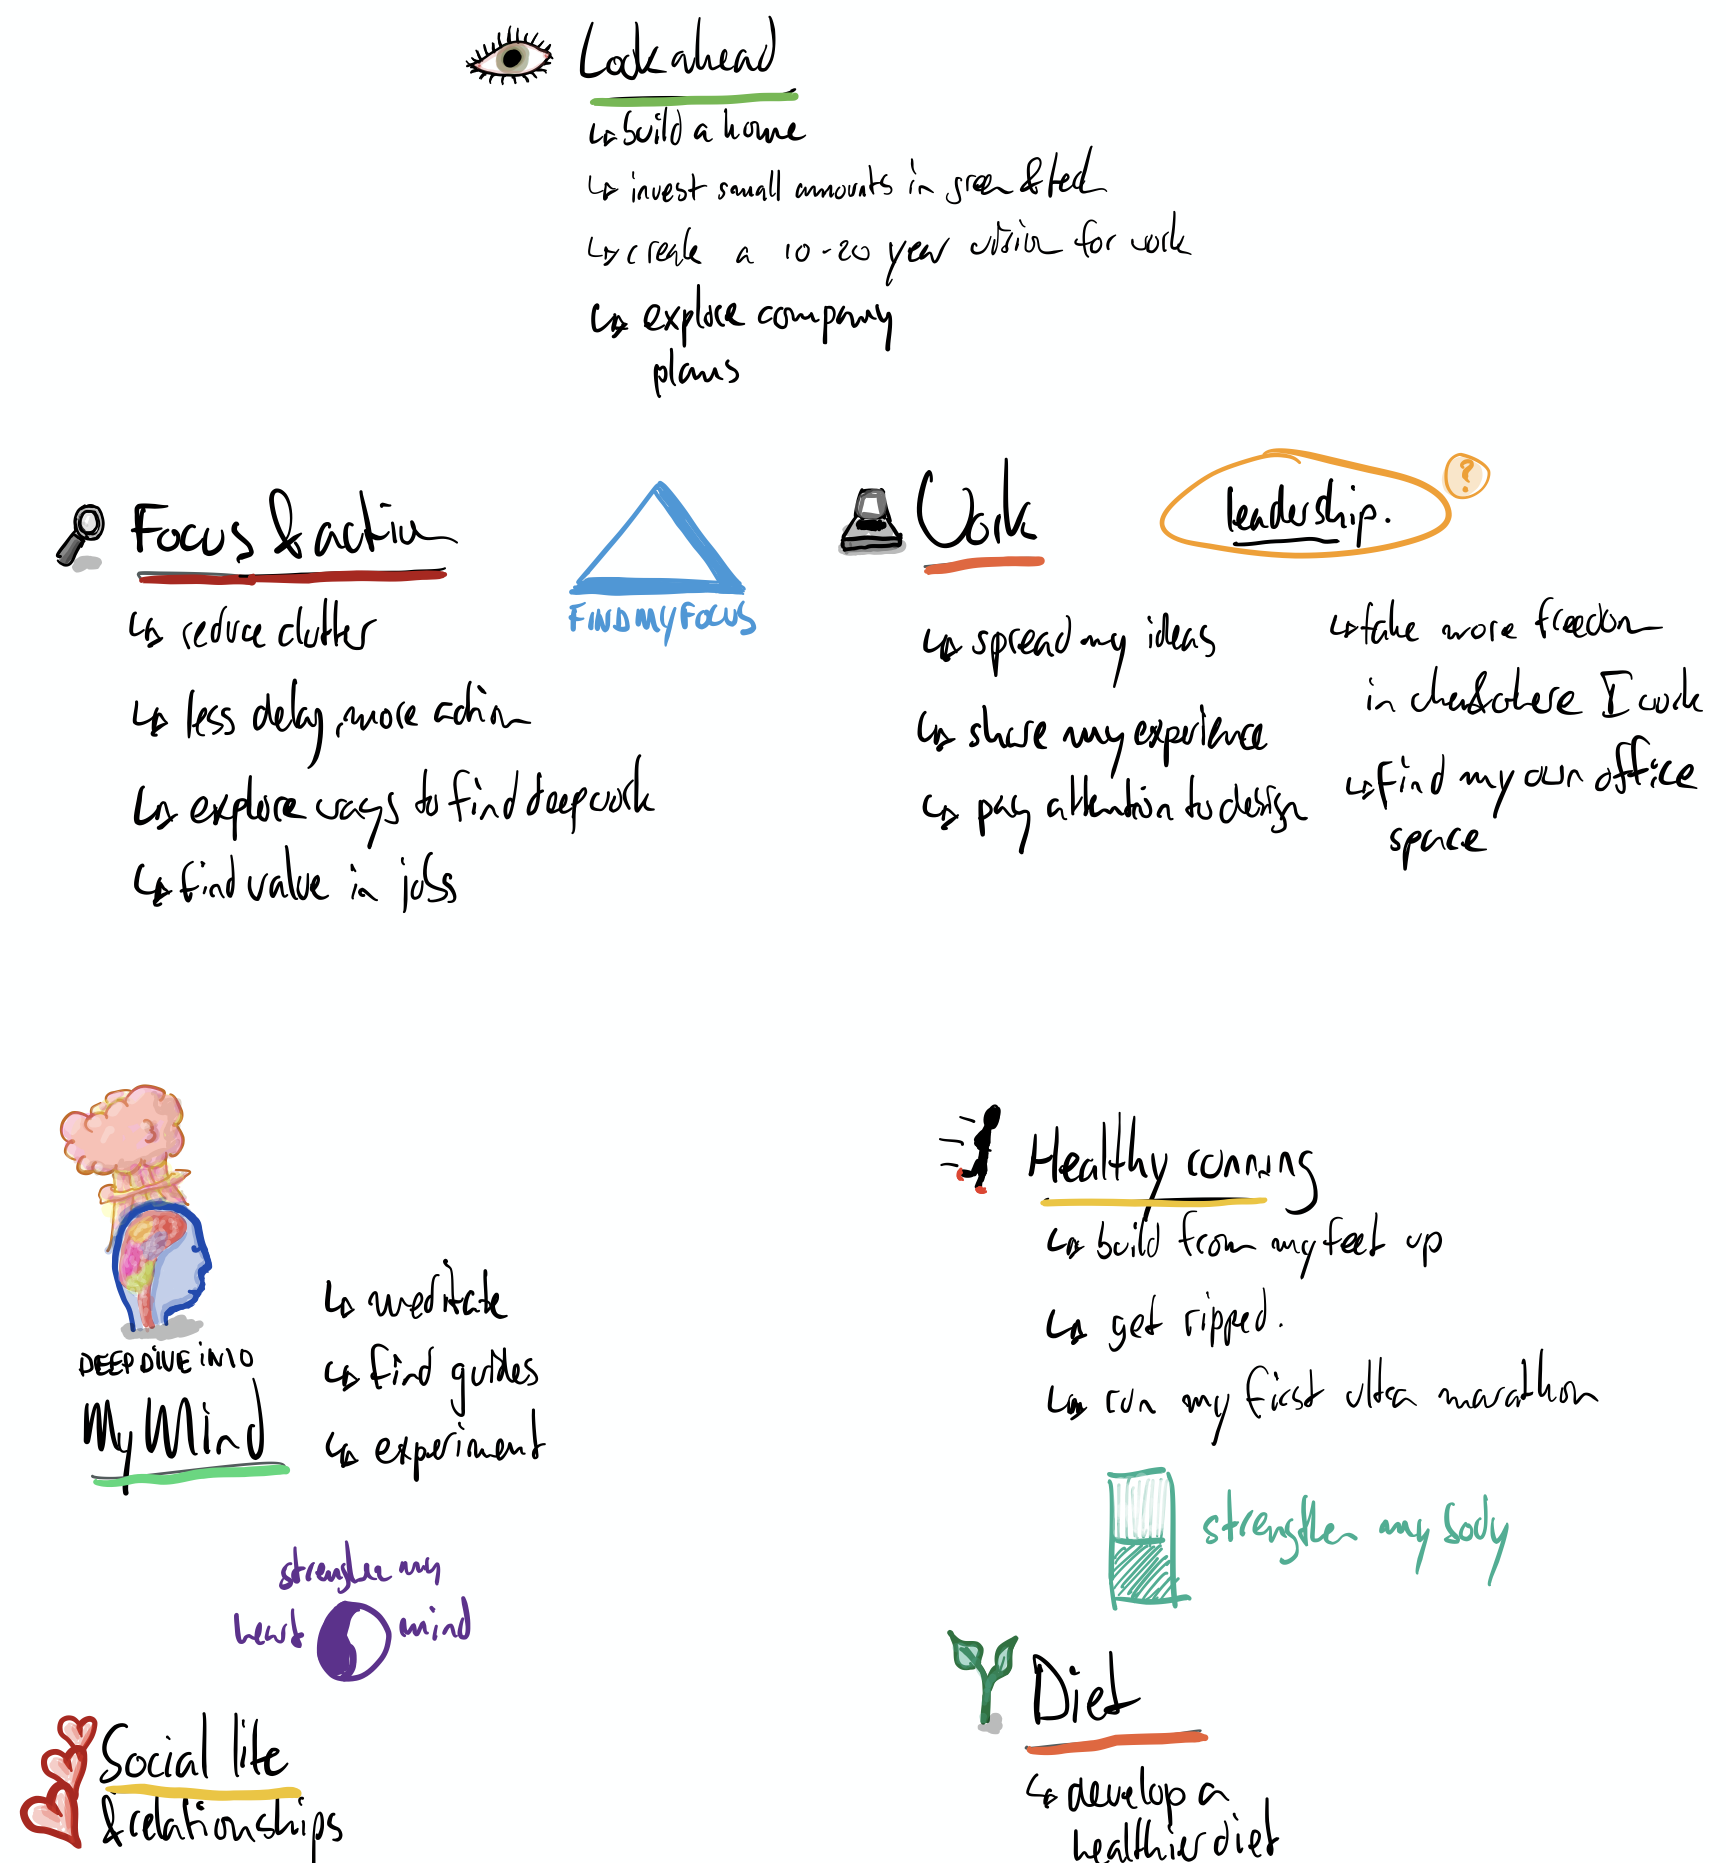 Look ahead
↳ build a home
↳ invest small amounts in green & tech
↳ create a 10-20 year vision for work
↳ explore company
plans
Focus & action
↳ reduce clutter
↳ less delay, more action
↳ explore ways to find deep work
↳ find value in jobs
FIND MY FOCUS
Work
↳ spread my ideas
↳ share my experience
↳ pay attention to design
leadership.
?
↳ take more freedom
in when & where I work
↳ Find my own office
space
DEEP DIVE INTO
My Mind
↳ meditate
↳ find guides
↳ experiment
strengthen my
heart mind
Social life
& relationships
Healthy running
↳ build from my feet up
↳ get ripped.
↳ run my first ultra marathon
strengthen my body
Diet
↳ develop a
healthier diet